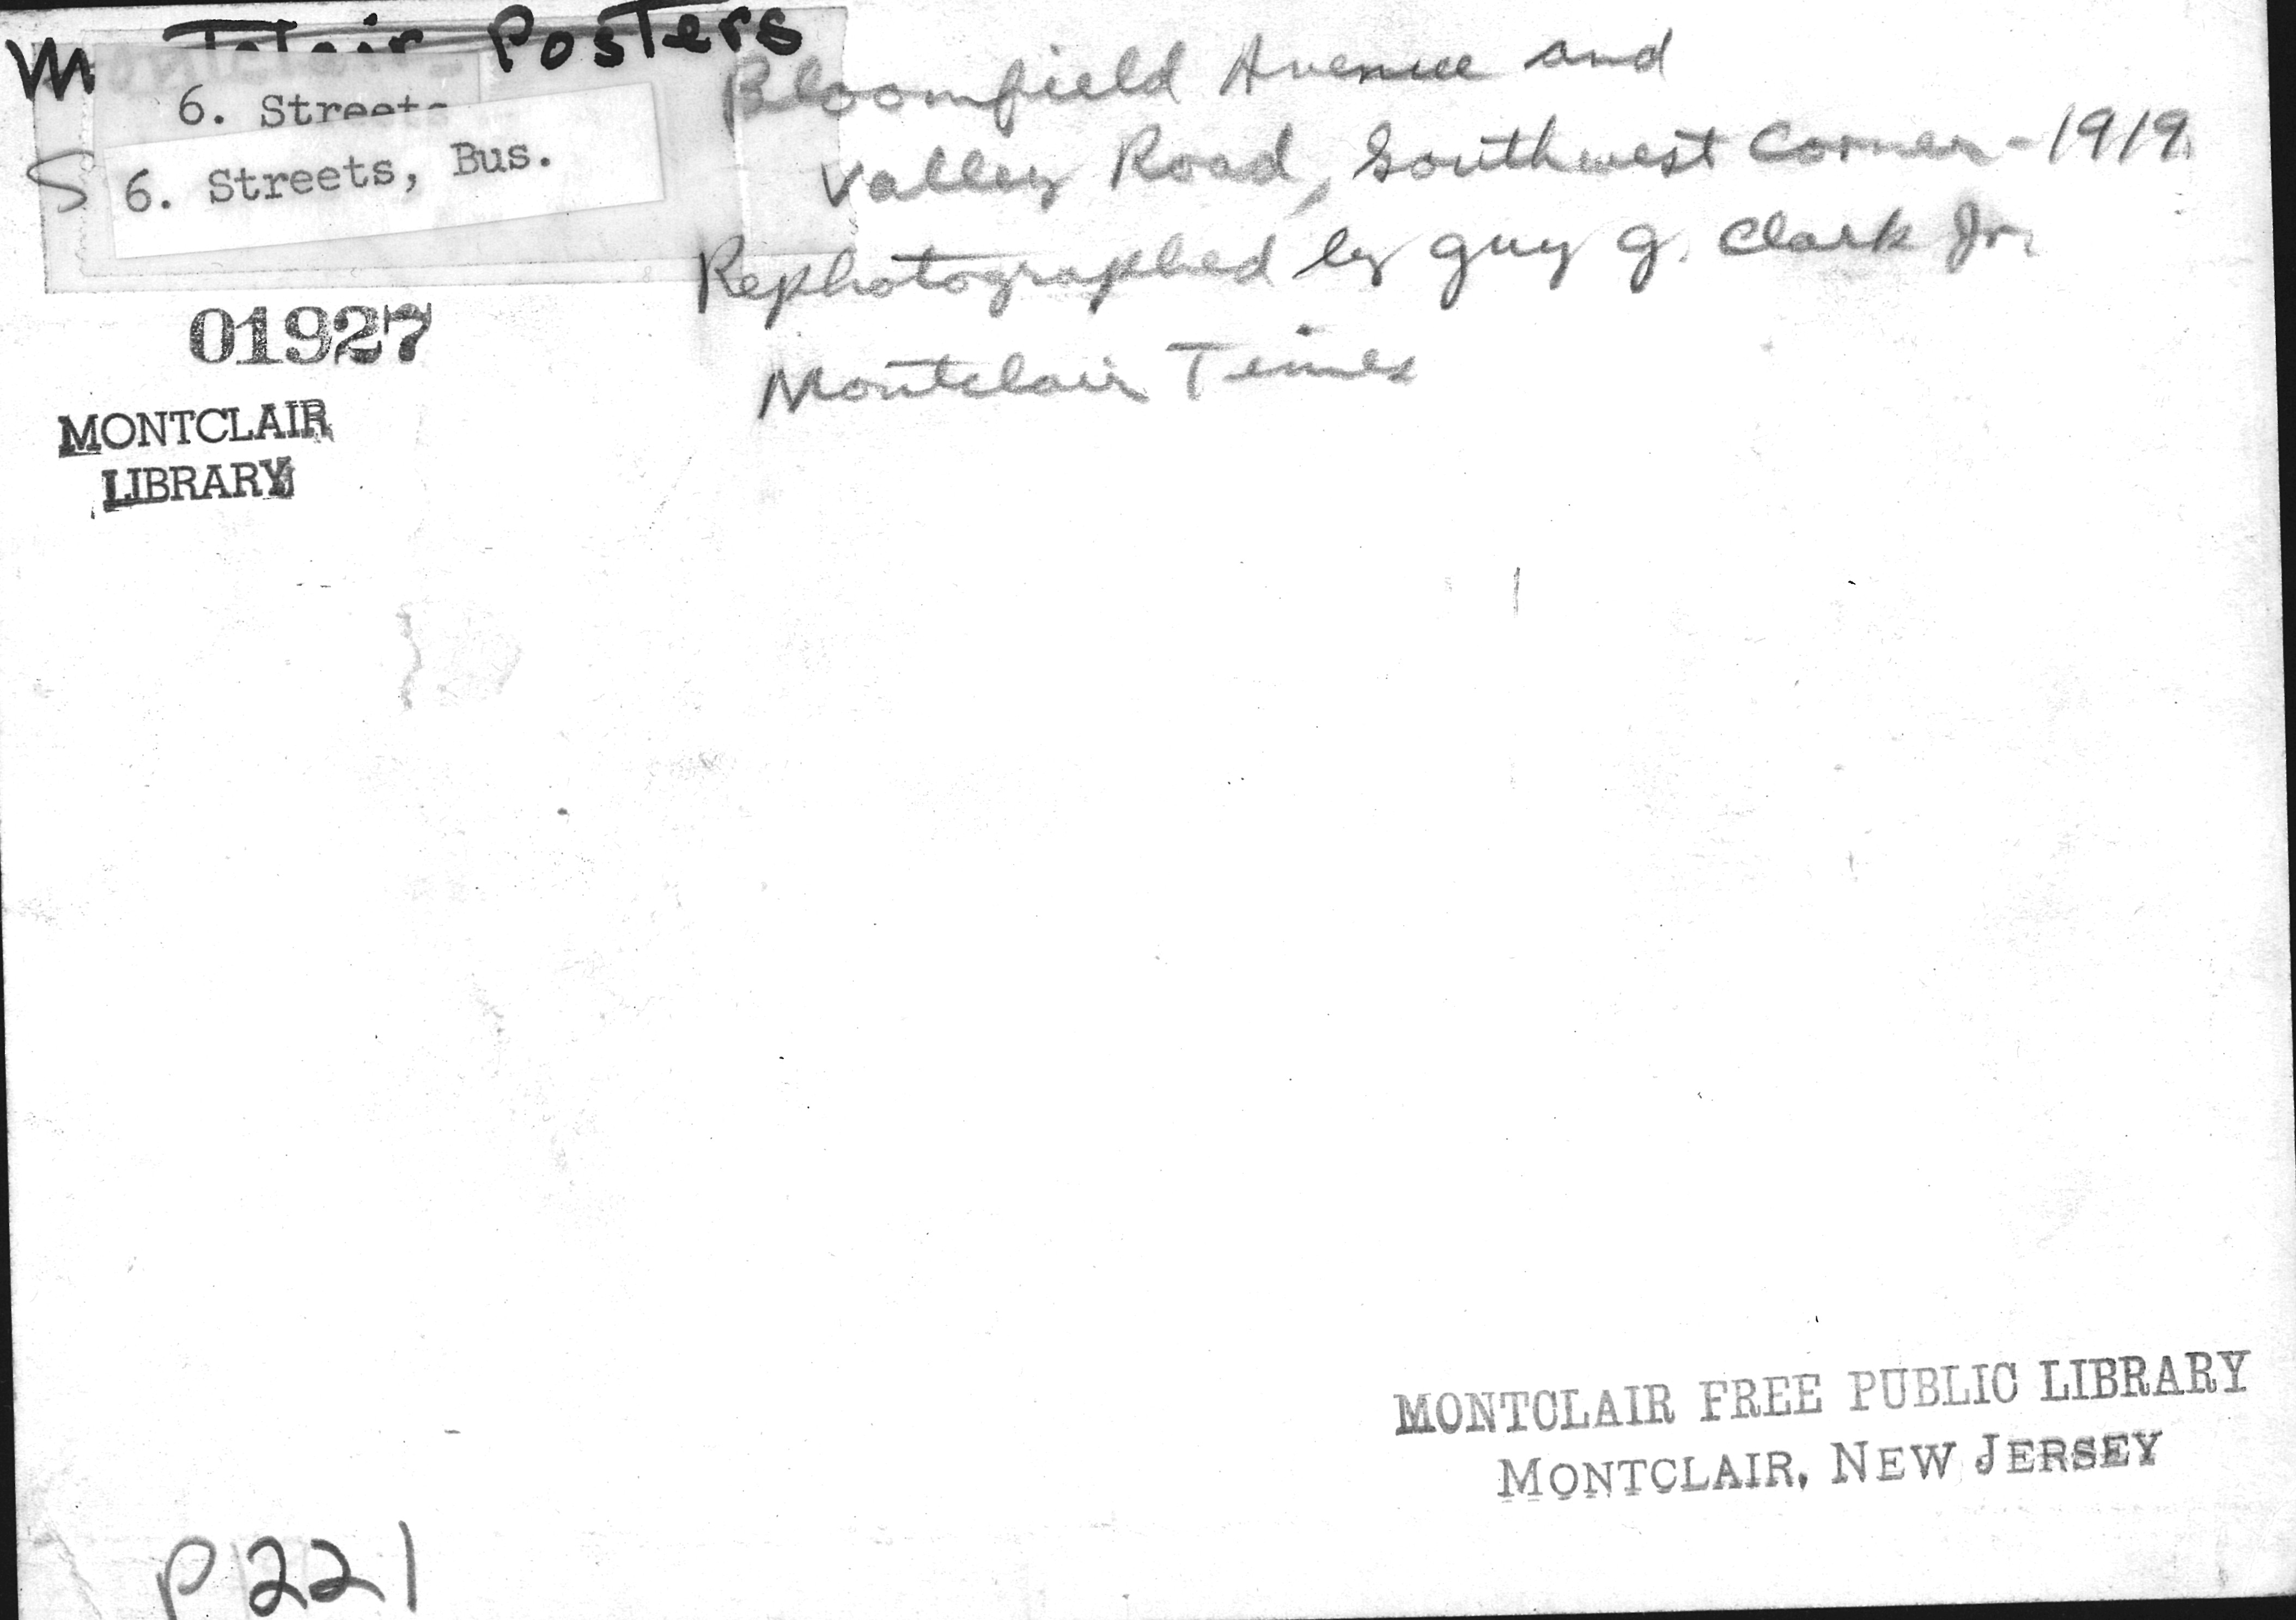 Montclair Posters
6. Streets
S 6. Streets, Bus.
Bloomfield Avenue and
Valley Road, Southwest Corner - 1919
Rephotographed by Guy G. Clark Jr.
Montclair Times
01927
MONTCLAIR
LIBRARY
MONTCLAIR FREE PUBLIC LIBRARY
MONTCLAIR, NEW JERSEY
P221